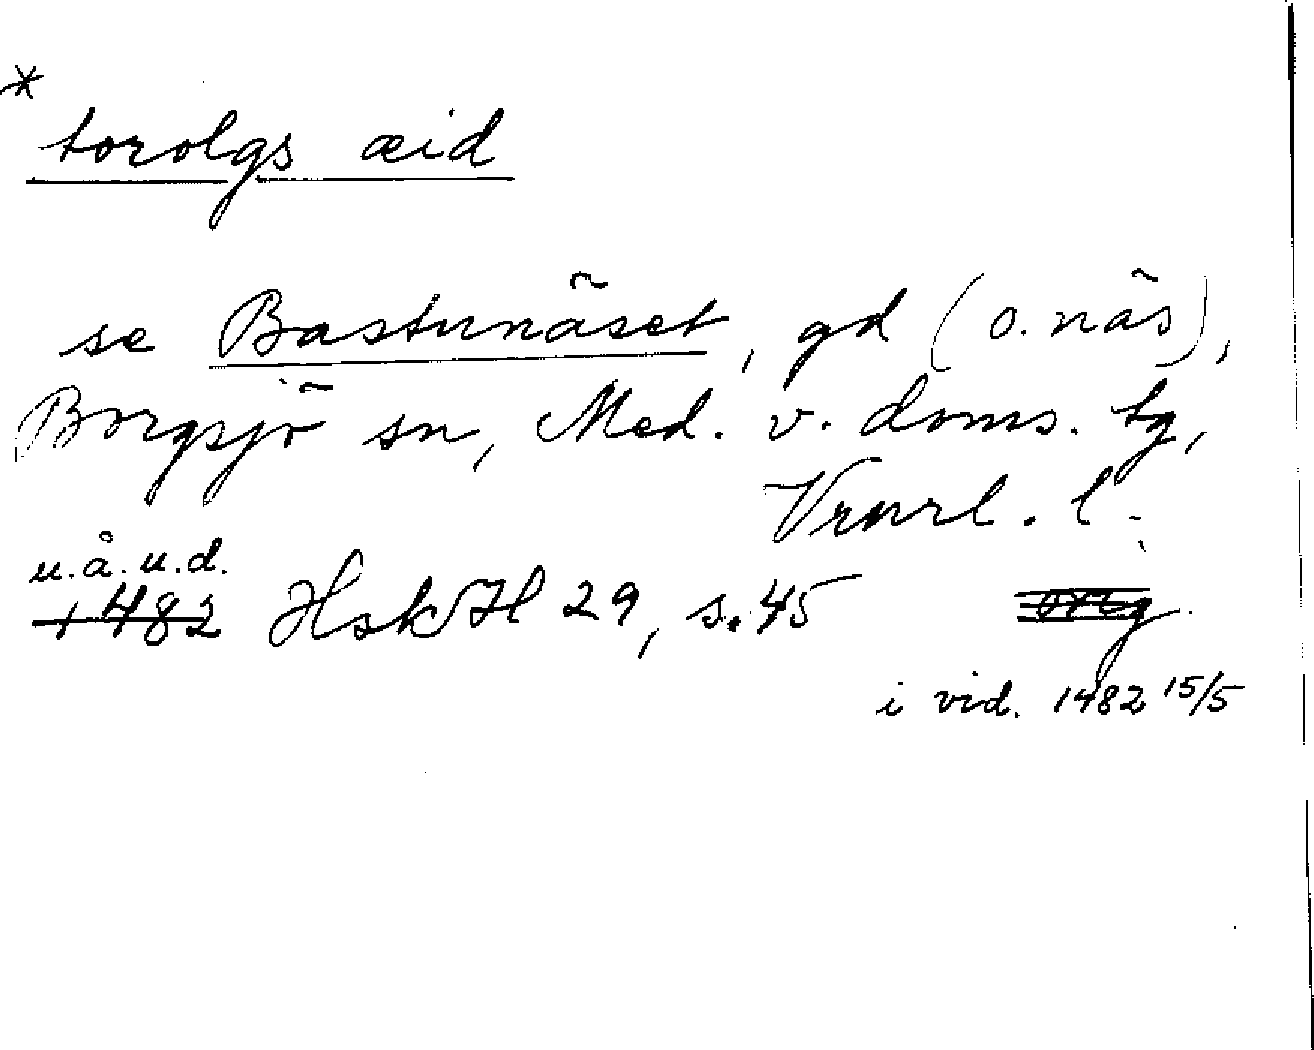 *
torolgs æid
se Bastunäset, gd (o. näs),
Borgsjö sn, Med. v. doms. tg,
Vrnrl. l.
u.å. u.d.
1482 HskH 29, s. 45 orig.
i vid. 1482 15/5